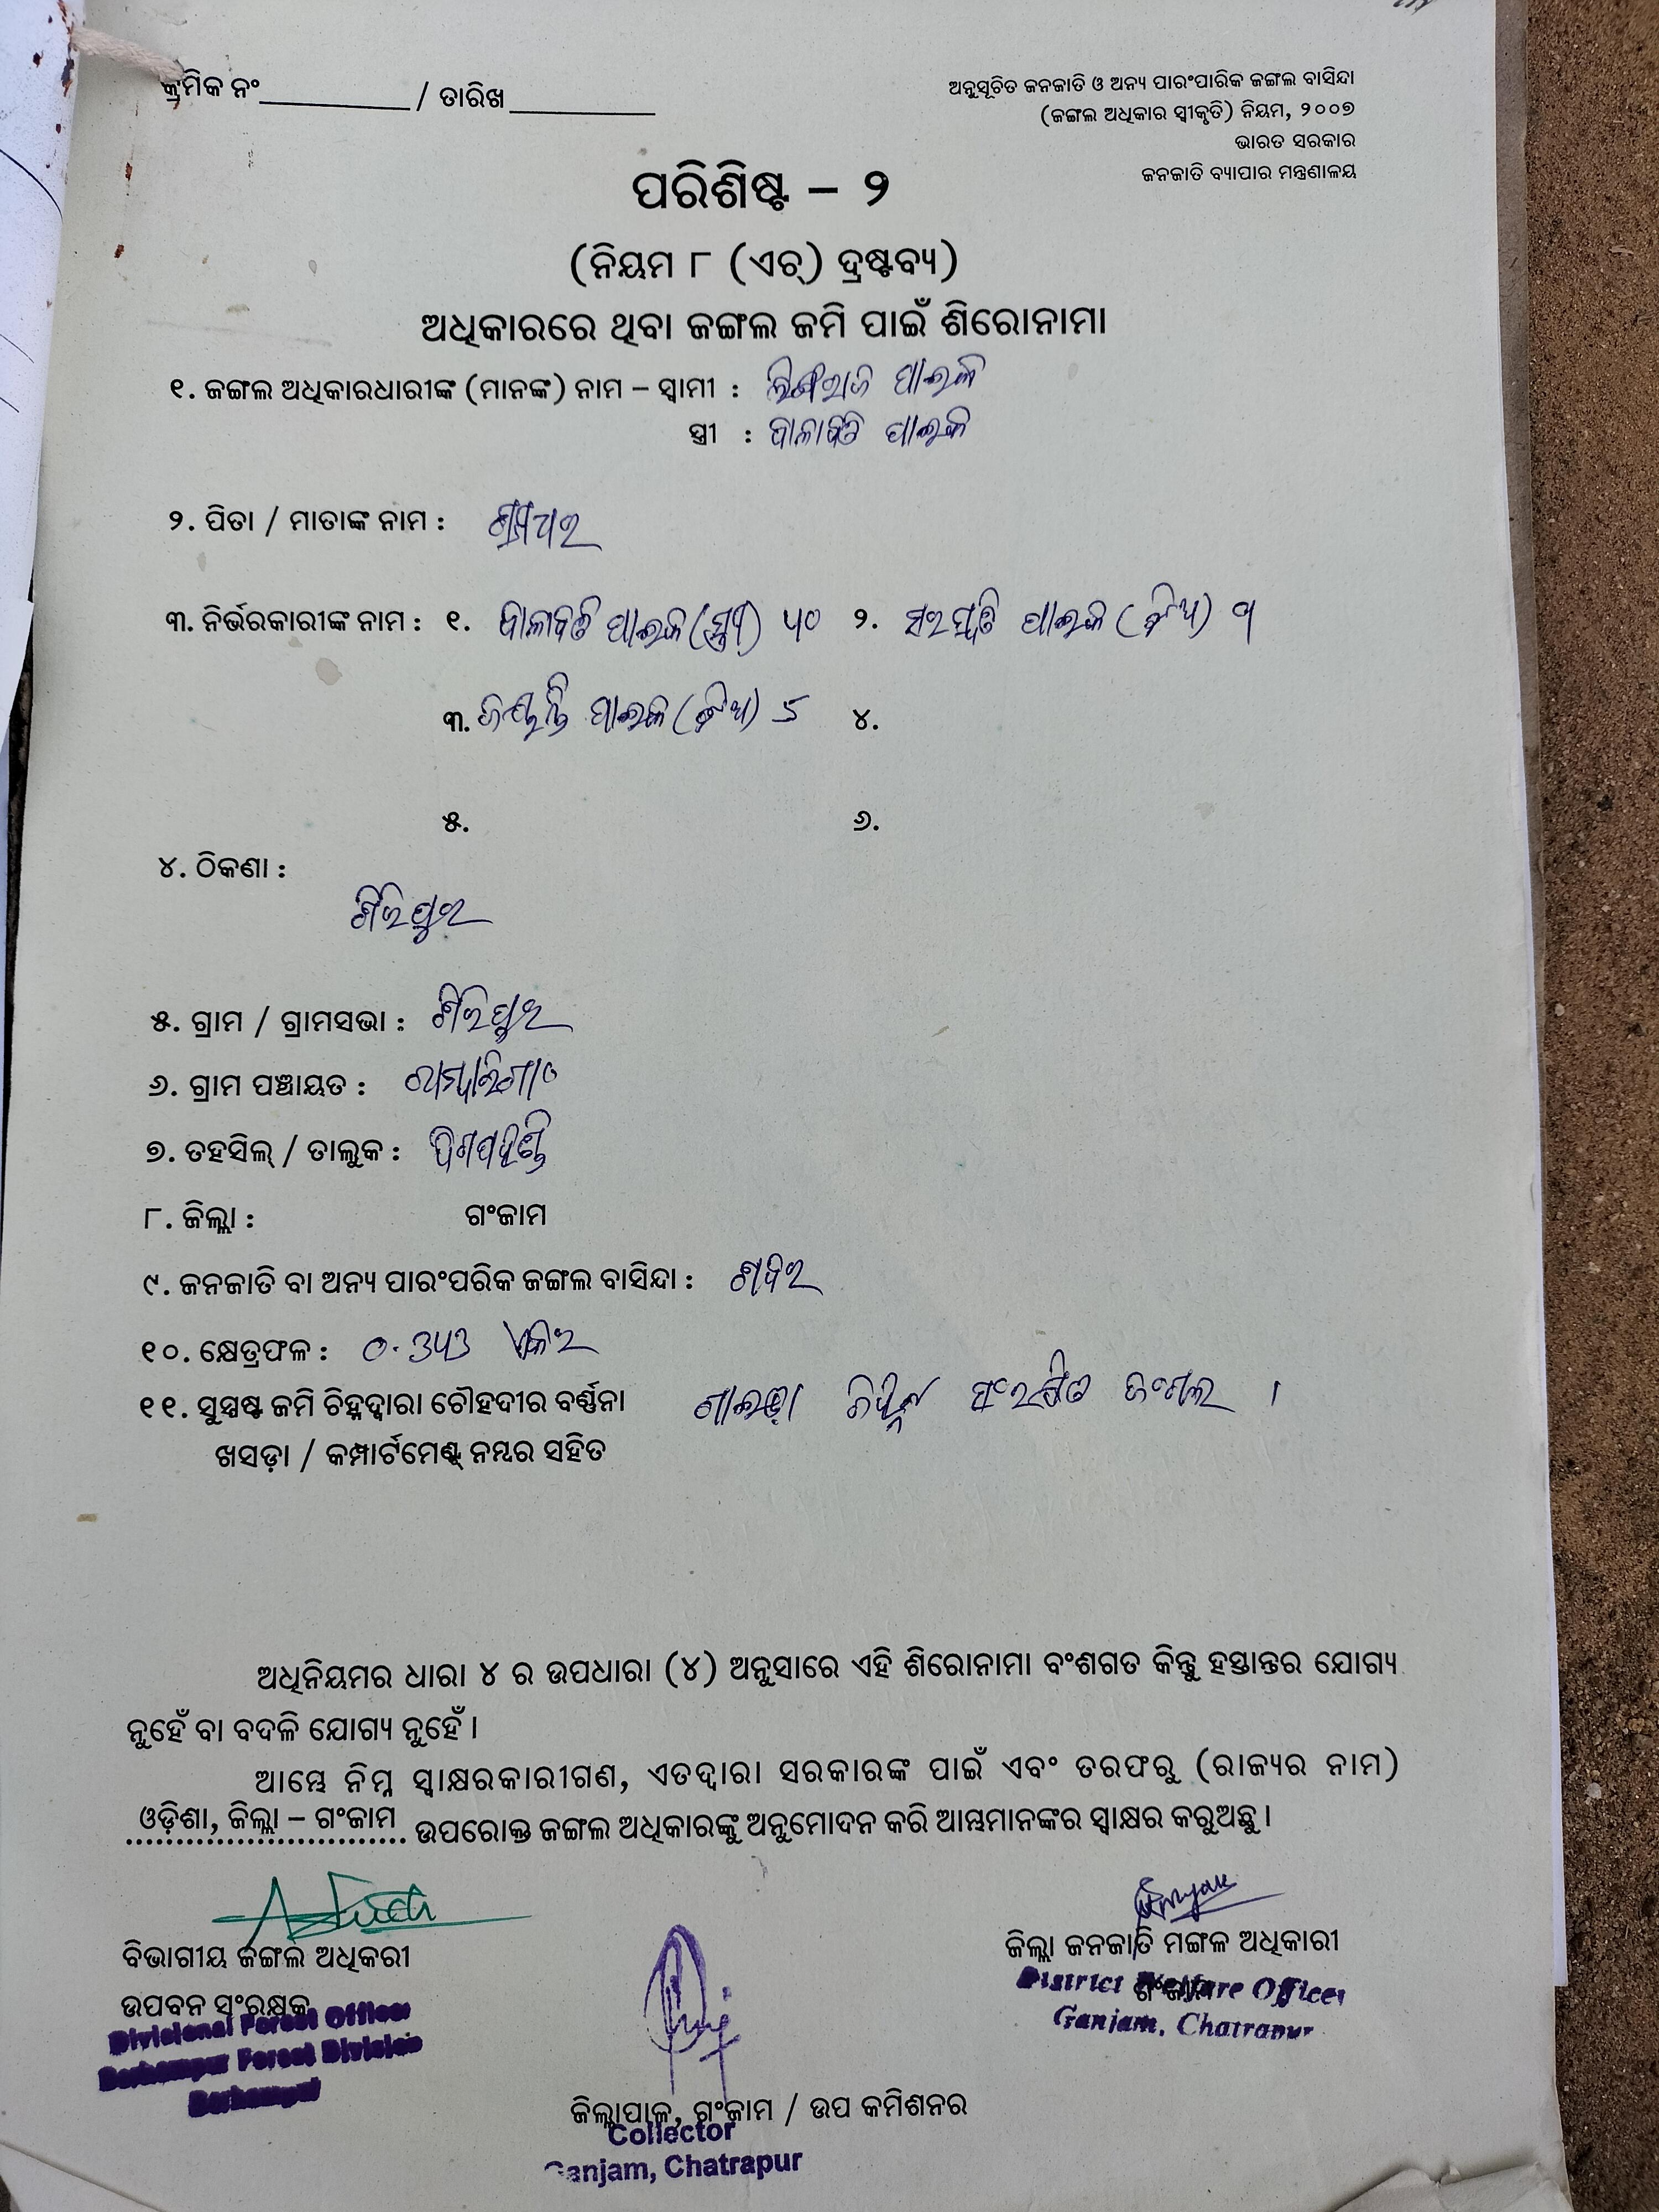 କ୍ରମିକ ନଂ__________ / ତାରିଖ__________
ଅନୁସୂଚିତ ଜନଜାତି ଓ ଅନ୍ୟ ପାରଂପାରିକ ଜଙ୍ଗଲ ବାସିନ୍ଦା
(ଜଙ୍ଗଲ ଅଧିକାର ସ୍ୱୀକୃତି) ନିୟମ, ୨୦୦୭
ଭାରତ ସରକାର
ଜନଜାତି ବ୍ୟାପାର ମନ୍ତ୍ରଣାଳୟ
ପରିଶିଷ୍ଟ – ୨
(ନିୟମ ୮ (ଏଚ୍) ଦ୍ରଷ୍ଟବ୍ୟ)
ଅଧିକାରରେ ଥିବା ଜଙ୍ଗଲ ଜମି ପାଇଁ ଶିରୋନାମା
୧. ଜଙ୍ଗଲ ଅଧିକାରଧାରୀଙ୍କ (ମାନଙ୍କ) ନାମ – ସ୍ୱାମୀ : ପାଇକ
ସ୍ତ୍ରୀ : ପାଇକ
୨. ପିତା / ମାତାଙ୍କ ନାମ :
୩. ନିର୍ଭରକାରୀଙ୍କ ନାମ : ୧. ପାଇକ (ସ୍ତ୍ରୀ) ୨. ପାଇକ (ଝିଅ) ୩. ପାଇକ (ଝିଅ) ୪.
୫. ୬.
୪. ଠିକଣା :
ଗିରିପୁର
୫. ଗ୍ରାମ / ଗ୍ରାମସଭା : ଗିରିପୁର
୬. ଗ୍ରାମ ପଞ୍ଚାୟତ :
୭. ତହସିଲ୍ / ତାଲୁକ : ଦିଗପହଣ୍ଡି
୮. ଜିଲ୍ଲା : ଗଂଜାମ
୯. ଜନଜାତି ବା ଅନ୍ୟ ପାରଂପରିକ ଜଙ୍ଗଲ ବାସିନ୍ଦା : ଶବର
୧୦. କ୍ଷେତ୍ରଫଳ : ଏକର
୧୧. ସୁସ୍ପଷ୍ଟ ଜମି ଚିହ୍ନଦ୍ୱାରା ଚୌହଦୀର ବର୍ଣ୍ଣନା ସଂରକ୍ଷିତ ଜଂଗଲ ।
ଖସଡ଼ା / କମ୍ପାର୍ଟମେଣ୍ଟ ନମ୍ବର ସହିତ
ଅଧିନିୟମର ଧାରା ୪ ର ଉପଧାରା (୪) ଅନୁସାରେ ଏହି ଶିରୋନାମା ବଂଶଗତ କିନ୍ତୁ ହସ୍ତାନ୍ତର ଯୋଗ୍ୟ
ନୁହେଁ ବା ବଦଳି ଯୋଗ୍ୟ ନୁହେଁ ।
ଆମ୍ଭେ ନିମ୍ନ ସ୍ୱାକ୍ଷରକାରୀଗଣ, ଏତଦ୍ୱାରା ସରକାରଙ୍କ ପାଇଁ ଏବଂ ତରଫରୁ (ରାଜ୍ୟର ନାମ)
ଓଡ଼ିଶା, ଜିଲ୍ଲା – ଗଂଜାମ ଉପରୋକ୍ତ ଜଙ୍ଗଲ ଅଧିକାରଙ୍କୁ ଅନୁମୋଦନ କରି ଆମ୍ଭମାନଙ୍କର ସ୍ୱାକ୍ଷର କରୁଅଛୁ ।
ବିଭାଗୀୟ ଜଙ୍ଗଲ ଅଧିକରୀ
ଉପବନ ସଂରକ୍ଷକ
Divisional Forest Officer
Berhampur Forest Division
Berhampur
ଜିଲ୍ଲା ଜନଜାତି ମଙ୍ଗଳ ଅଧିକାରୀ
ଗଂଜାମ
District Welfare Officer
Ganjam, Chatrapur
ଜିଲ୍ଲାପାଳ, ଗଂଜାମ / ଉପ କମିଶନର
Collector
Ganjam, Chatrapur